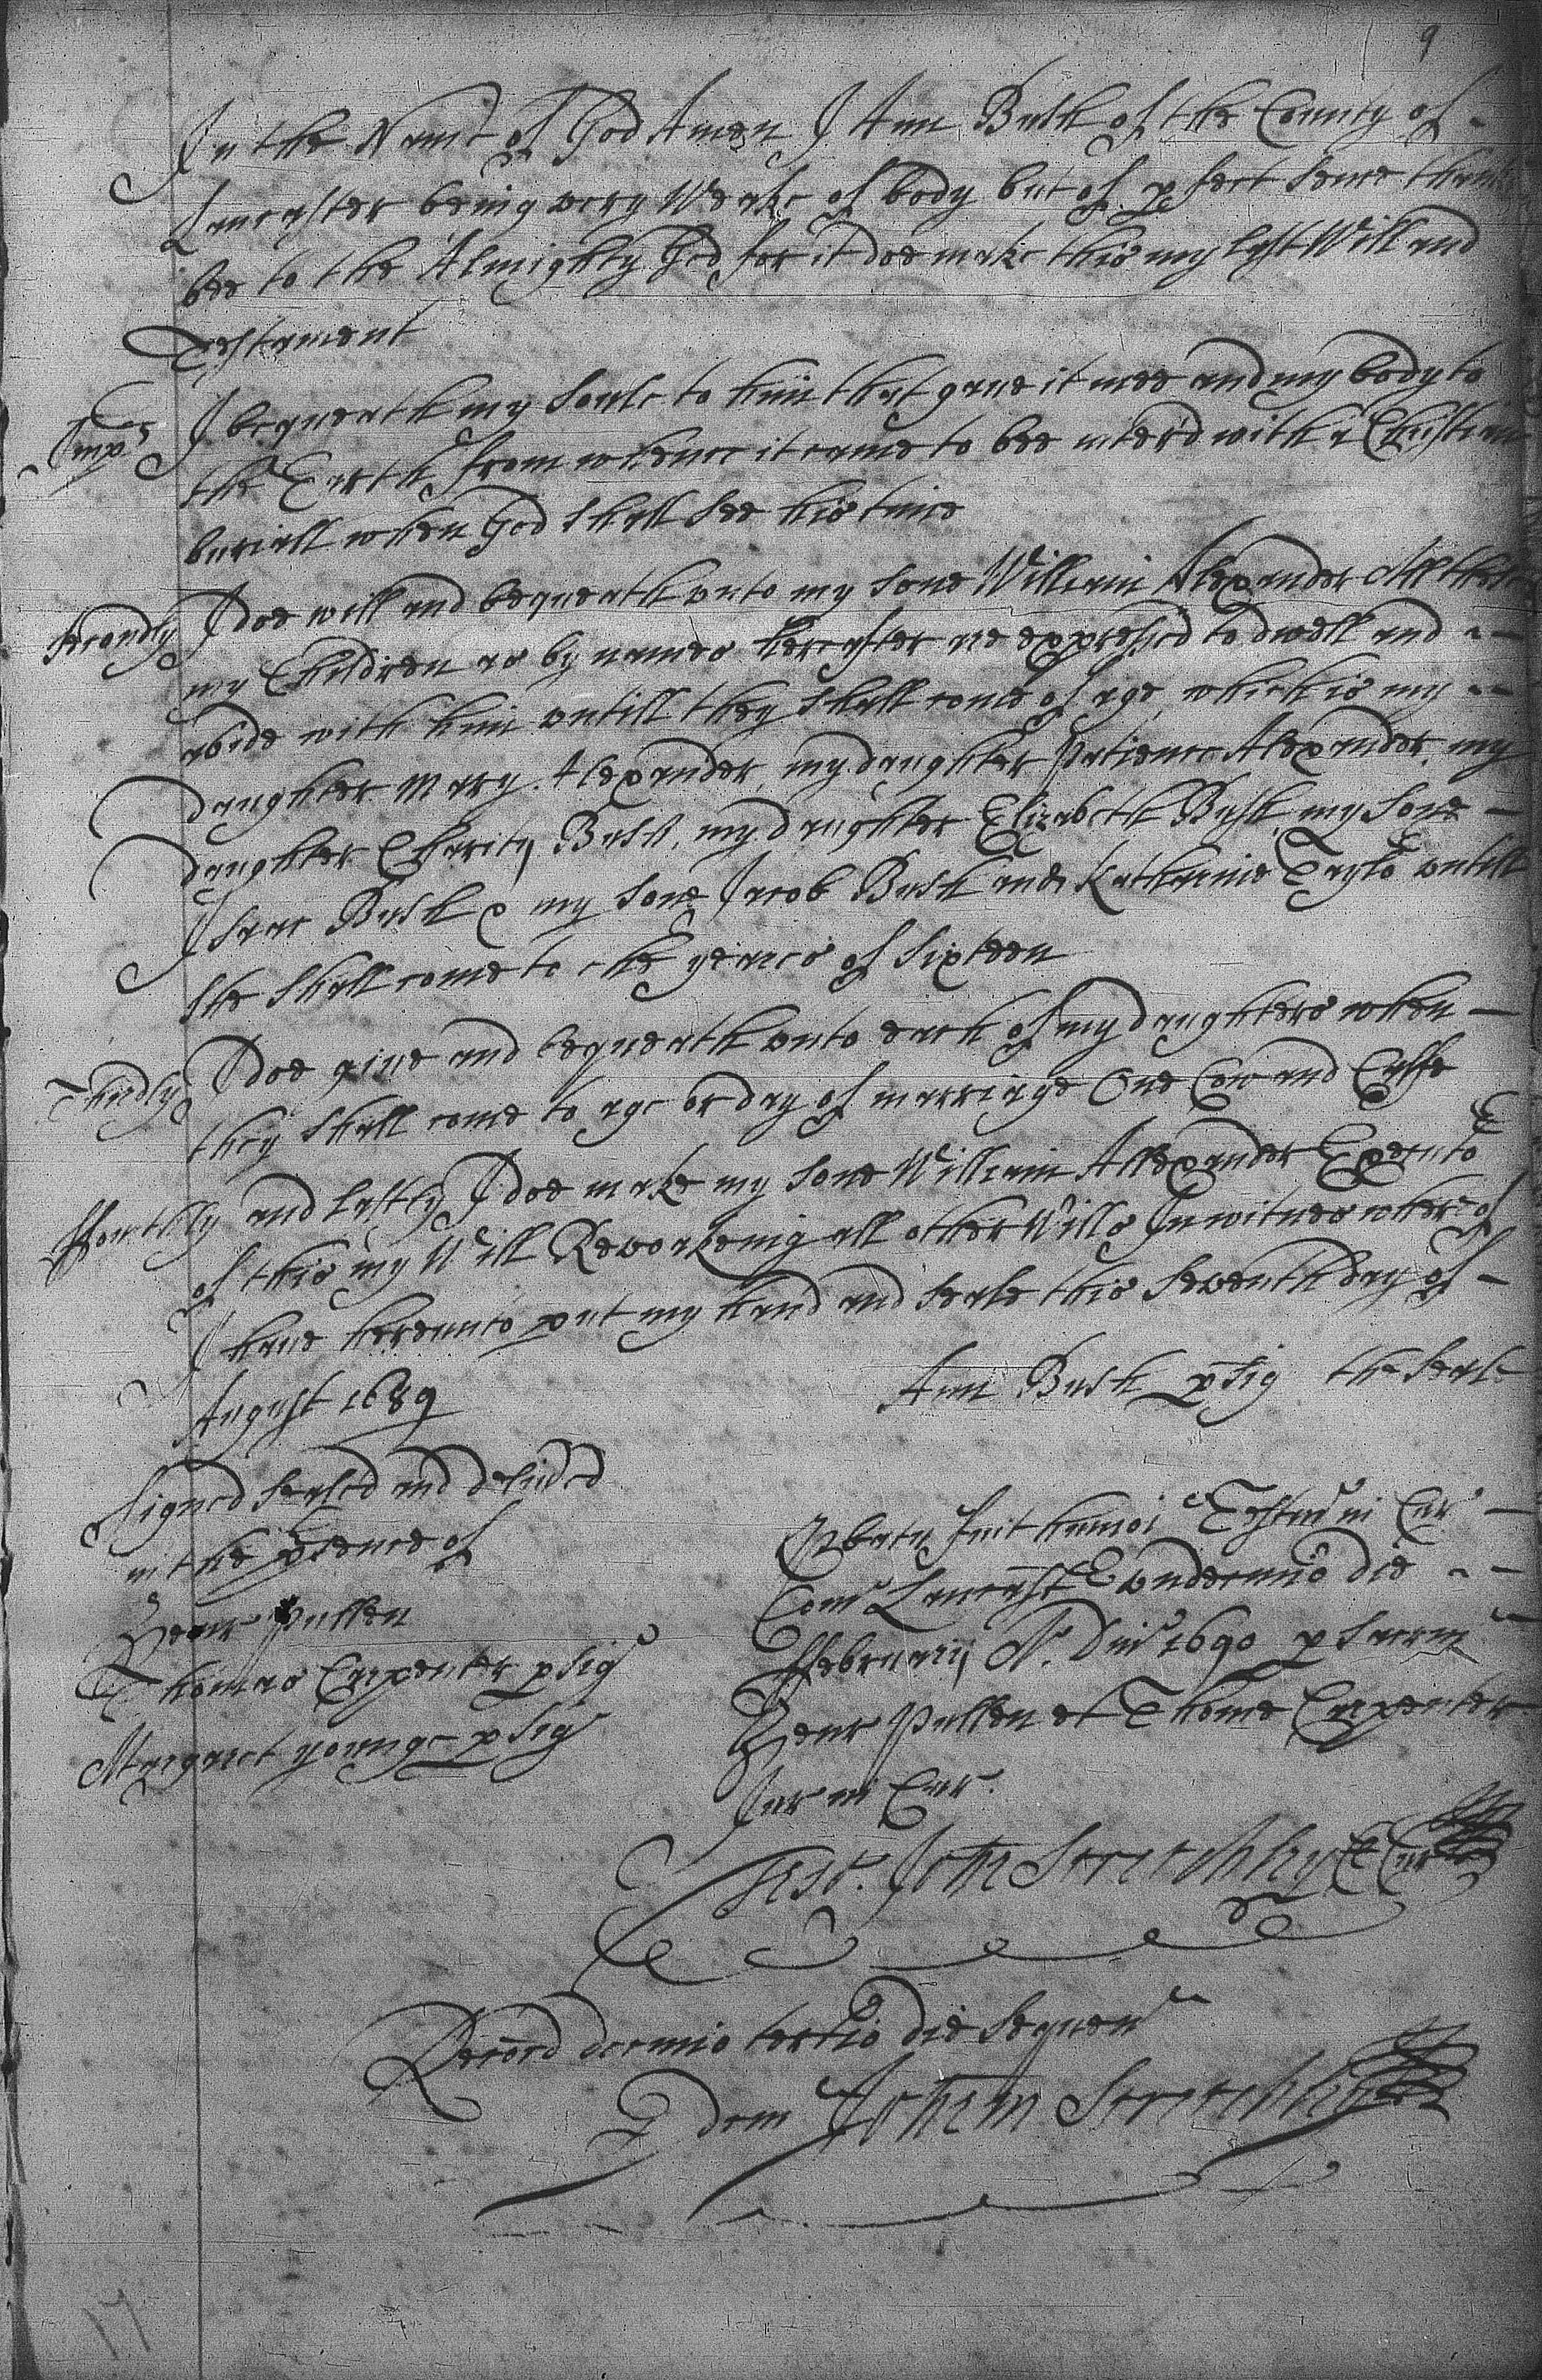 9
In the Name of God Amen I Ann Bush of the County of
Lancaster being very Weake of body but of pfect sence thanks
bee to the Almighty God for it doe make this my last Will and
Testament
Imps I bequeath my soule to him that gave it mee and my body to
the Earth from whence it came to bee inter'd with a Christian
buriall when God shall see his time
Secondly I doe will and bequeath unto my sone William Alexander All these
my Children as by names hereafter are expressed to dwell and
abide with him untill they shall come of age, which is my
daughter Mary Alexander, my daughter Patience Alexander, my
daughter Charity Bush, my daughter Elizabeth Bush, my sone
Isaac Bush & my sone Jacob Bush and Katherine Taylo untill
she shall come to the yeares of sixteen
Thirdly I doe give and bequeath unto each of my daughters when
they shall come to age or day of marriage One Cow and Calfe
ffourthly and lastly I doe make my sone William Allexander Executo
of this my Will Revoakeing all other Wills In witnes whereof
I have hereunto put my hand and seale this seventh day of
August 1689
Ann Bush p sig the seale
Signed sealed and delivded
in the psence of
Henr Pullen
Thomas Carpenter p sig
Margaret younge p sig
Pbatu fuit humoi Testum in Cur
Com Lancast Undecimo die
ffebruarij Ao. Dni 1690 p sacrm
Henr Pullen et Thome Carpenter
Jur in Cur.
Test. John Stretchley Cl Cur
Record decimo tertio die sequen
P dem Johem Stretchley
17